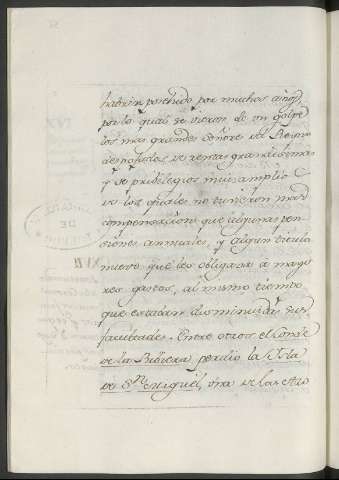 habrian posehido por muchos años,
por lo qual se vieron de un golpe
los mas grandes señores del Reyno
despojados de rentas grandissimas
y de privilegios mui amplios
de los quales no tuvieron mas
compensacion que algunas pen
siones annuales, y algun titulo
nuevo que les obligava à mayo
res gastos, al mismo tiempo
que estavan disminuidas sus
facultades. Entre otros el Conde
de la Riviera, perdio la Isla
de Sn. Miguèl, una de las